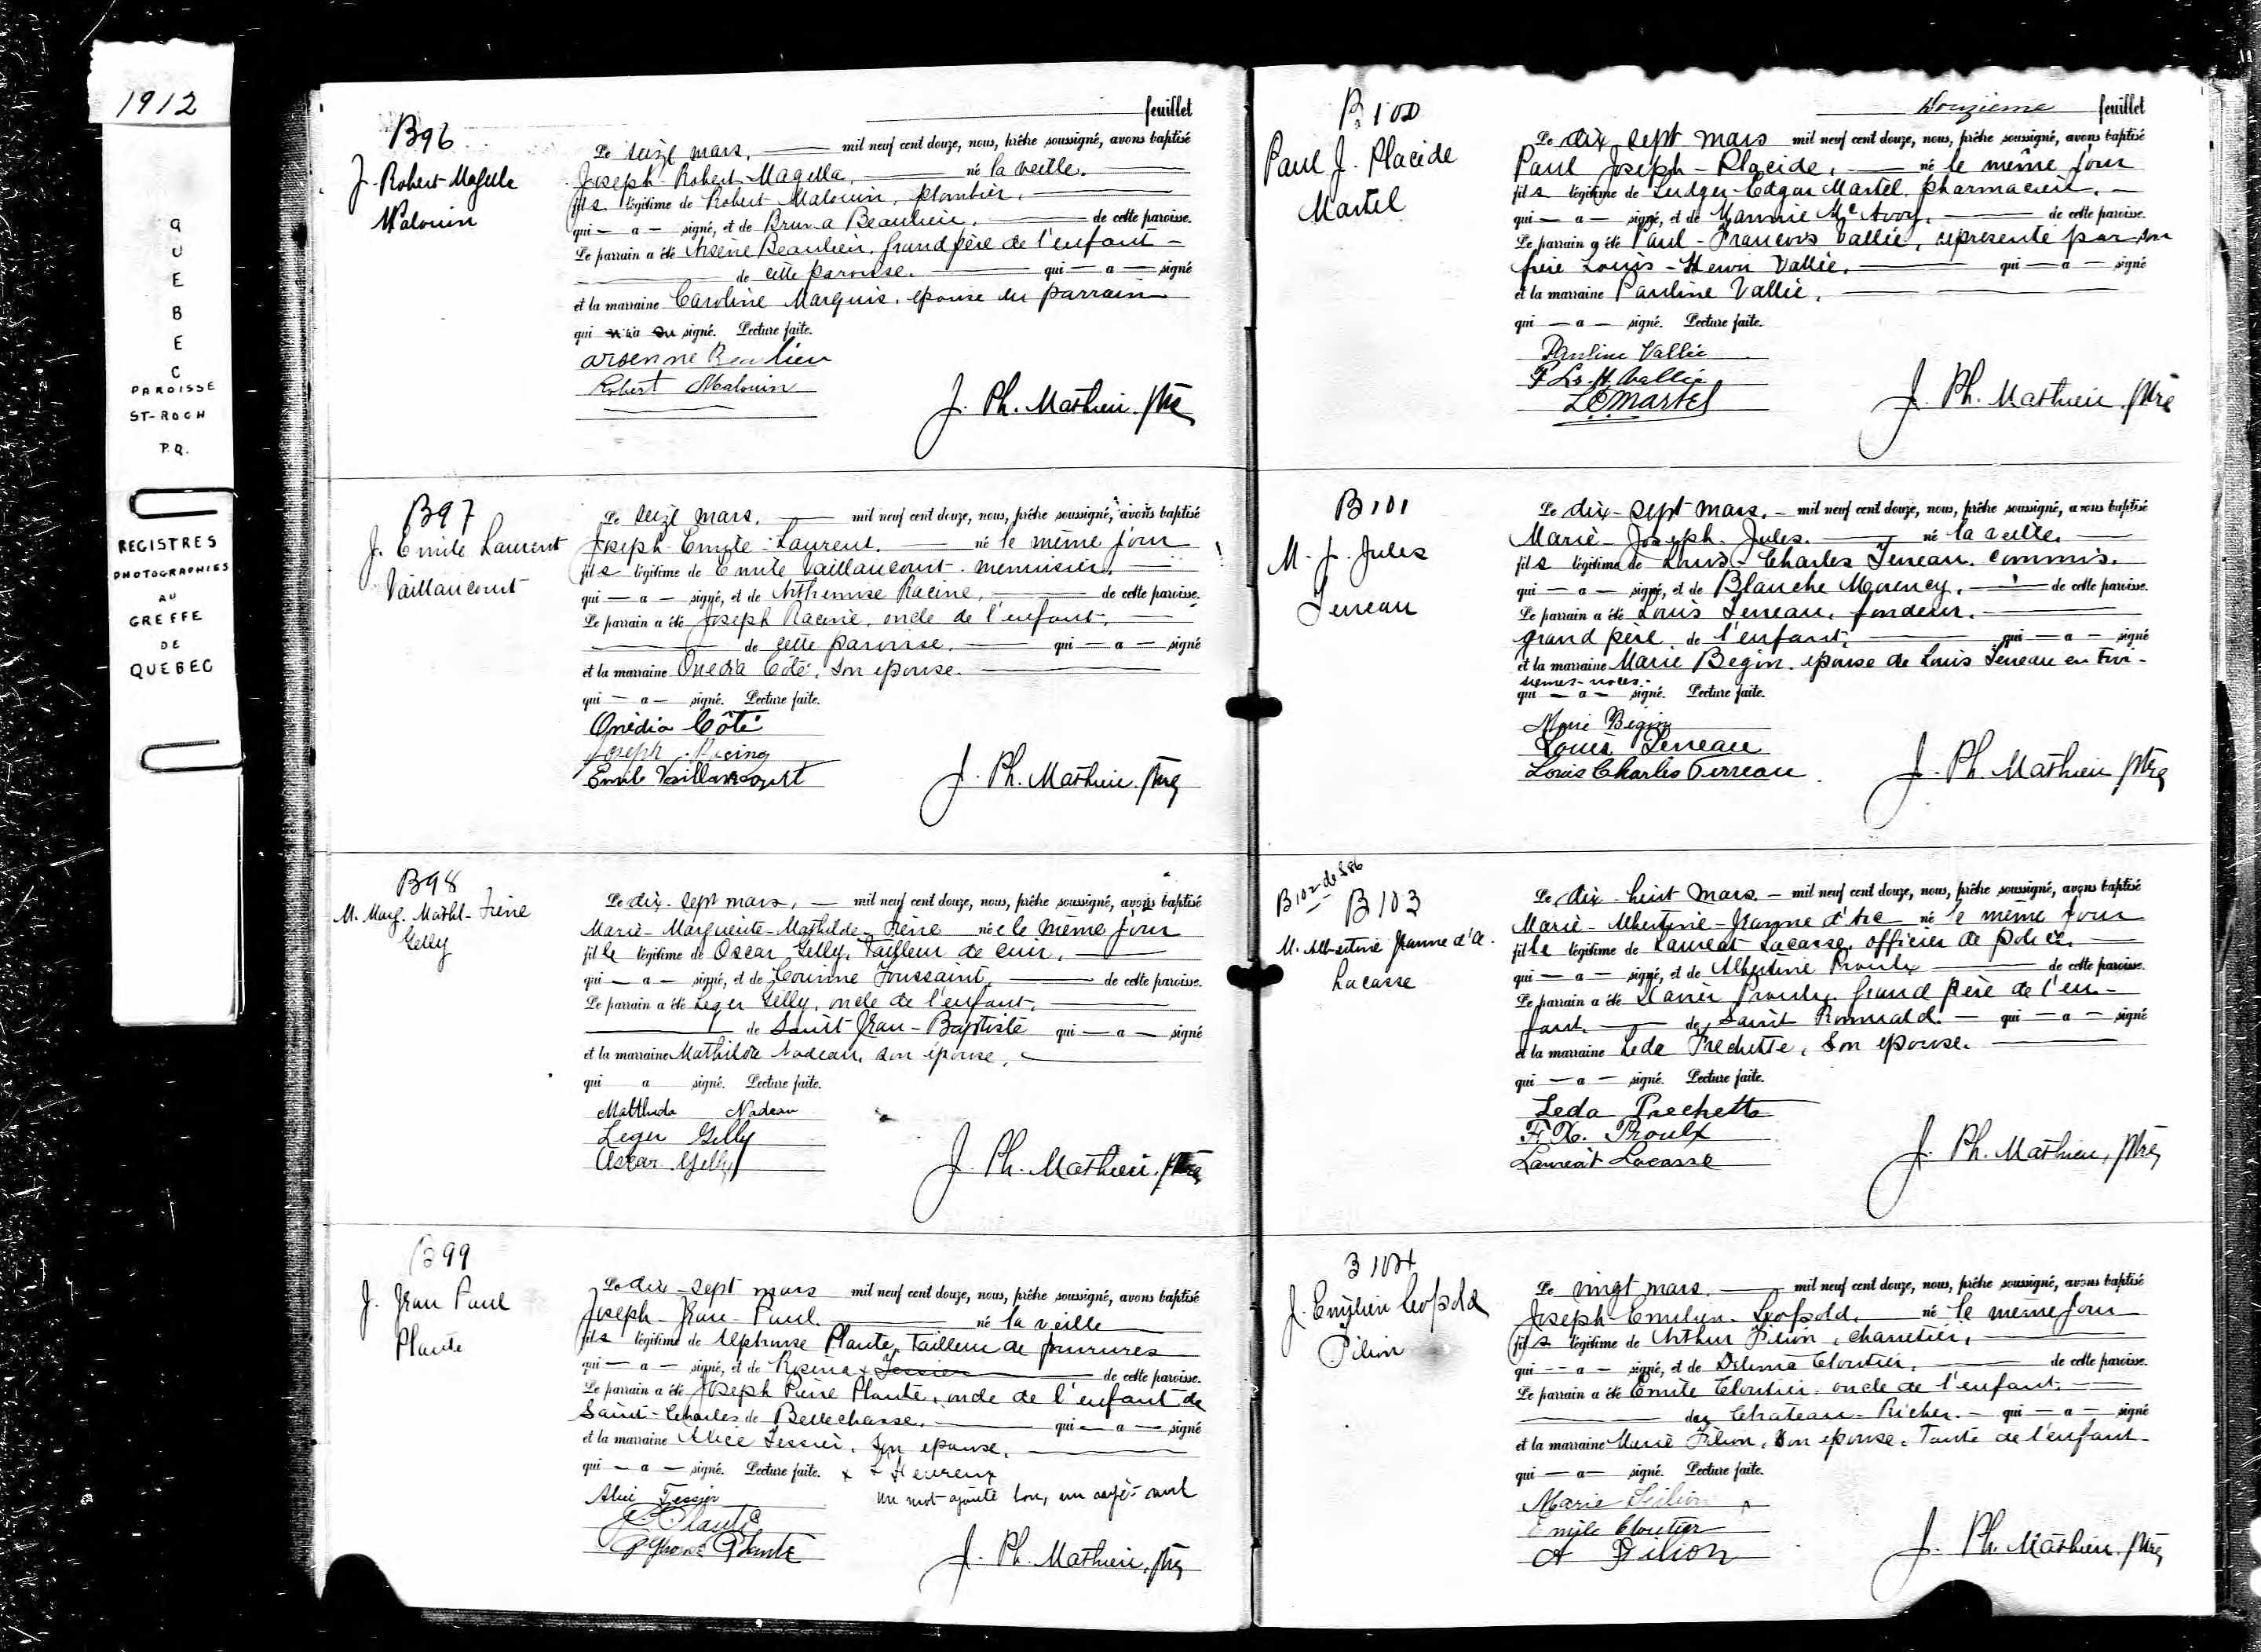 1912
QUEBEC
PAROISSE
ST-ROCH
P.Q.
REGISTRES
PHOTOGRAPHIES
AU
GREFFE
DE
QUEBEC
feuillet
B96
J. Robert-Magella
Malouin
Le seize mars, mil neuf cent douze, nous, prêtre soussigné, avons baptisé
Joseph-Robert-Magella, né la veille.
fils légitime de Robert Malouin, plombier,
qui a signé, et de Bruna Beaulieu, de cette paroisse.
Le parrain a été Arsène Beaulieu, grand père de l'enfant
de cette paroisse. qui a signé
et la marraine Caroline Marquis, épouse du parrain
qui n'a su signé. Lecture faite.
arsenne Beaulieu
Robert Malouin
J. Ph. Mathieu, ptre
B97
J. Emile Laurent
Vaillancourt
Le seize mars, mil neuf cent douze, nous, prêtre soussigné, avons baptisé
Joseph-Emile-Laurent, né le même jour
fils légitime de Emile Vaillancourt, menuisier,
qui a signé, et de Arthemise Racine, de cette paroisse.
Le parrain a été Joseph Racine, oncle de l'enfant,
de cette paroisse. qui a signé
et la marraine Onedia Côté, son epouse.
qui a signé. Lecture faite.
Onédia Côté
Joseph Racine
Emile Vaillancourt
J. Ph. Mathieu, ptre
B98
M. Marg. Mathil-Irène
Gelly
Le dix-sept mars, mil neuf cent douze, nous, prêtre soussigné, avons baptisé
Marie-Marguerite-Mathilde-Irène née le même jour
fille légitime de Oscar Gelly, tailleur de cuir,
qui a signé, et de Corinne Toussaint, de cette paroisse.
Le parrain a été Leger Gelly, oncle de l'enfant,
de Saint Jean-Baptiste qui a signé
et la marraine Mathilda Nadeau, son épouse,
qui a signé. Lecture faite.
Mathilda Nadeau
Leger Gelly
Oscar Gelly
J. Ph. Mathieu, ptre
B99
J. Jean Paul
Plante
Le dix-sept mars mil neuf cent douze, nous, prêtre soussigné, avons baptisé
Joseph-Jean-Paul. né la veille
fils légitime de Alphonse Plante, tailleur de fourrures
qui a signé, et de Rosina x Tessier de cette paroisse.
Le parrain a été Joseph Pierre Plante, oncle de l'enfant de
Saint-Charles de Bellechasse, qui a signé
et la marraine Alice Tessier, son epouse,
qui a signé. Lecture faite. x L'Heureux
Alice Tessier un mot ajouté bon, un rayé nul
Plante
Alphonse Plante
J. Ph. Mathieu, ptre
Douzième feuillet
B100
Paul J. Placide
Martel
Le dix sept mars mil neuf cent douze, nous, prêtre soussigné, avons baptisé
Paul Joseph-Placide, né le même jour
fils légitime de Ludger-Edgar Martel, pharmacien,
qui a signé, et de Mannie McAvoy, de cette paroisse.
Le parrain a été Paul-François Vallée, représenté par son
frère Louis-Henri Vallée, qui a signé
et la marraine Pauline Vallée,
qui a signé. Lecture faite.
Pauline Vallée
P Ls. H. Vallée
L.E. Martel
J. Ph. Mathieu, ptre
B101
M. J. Jules
Terreau
Le dix-sept mars. mil neuf cent douze, nous, prêtre soussigné, avons baptisé
Marie-Joseph-Jules. né la veille.
fils légitime de Louis-Charles Terreau, commis.
qui a signé, et de Blanche Marency, de cette paroisse.
Le parrain a été Louis Terreau, fondeur.
grand père de l'enfant, qui a signé
et la marraine Marie Begin, epouse de Louis Terreau en troi-
siemes noces.
qui a signé. Lecture faite.
Marie Begin
Louis Terreau
Louis Charles Terreau
J. Ph. Mathieu ptre
B102 de S86
B103
M. Albertine Jeanne d'A.
Lacasse
Le dix-huit mars. mil neuf cent douze, nous, prêtre soussigné, avons baptisé
Marie-Albertine-Jeanne d'Arc né le même jour
fille légitime de Lauréat Lacasse, officier de police.
qui a signé, et de Albertine Proulx de cette paroisse.
Le parrain a été Xavier Proulx, grand père de l'en-
fant. de Saint Romuald. qui a signé
et la marraine Leda Frechette, son epouse.
qui a signé. Lecture faite.
Leda Frechette
F. X. Proulx
Laureat Lacasse
J. Ph. Mathieu, ptre
B104
J. Emilien Leopold
Filion
Le vingt mars. mil neuf cent douze, nous, prêtre soussigné, avons baptisé
Joseph-Emilien-Leopold, né le même jour
fils légitime de Arthur Filion, charretier,
qui a signé, et de Delima Cloutier, de cette paroisse.
Le parrain a été Emile Cloutier, oncle de l'enfant,
de Chateau-Richer. qui a signé
et la marraine Marie Filion, son epouse, tante de l'enfant
qui a signé. Lecture faite.
Marie Filion
Emile Cloutier
A Filion
J. Ph. Mathieu, ptre